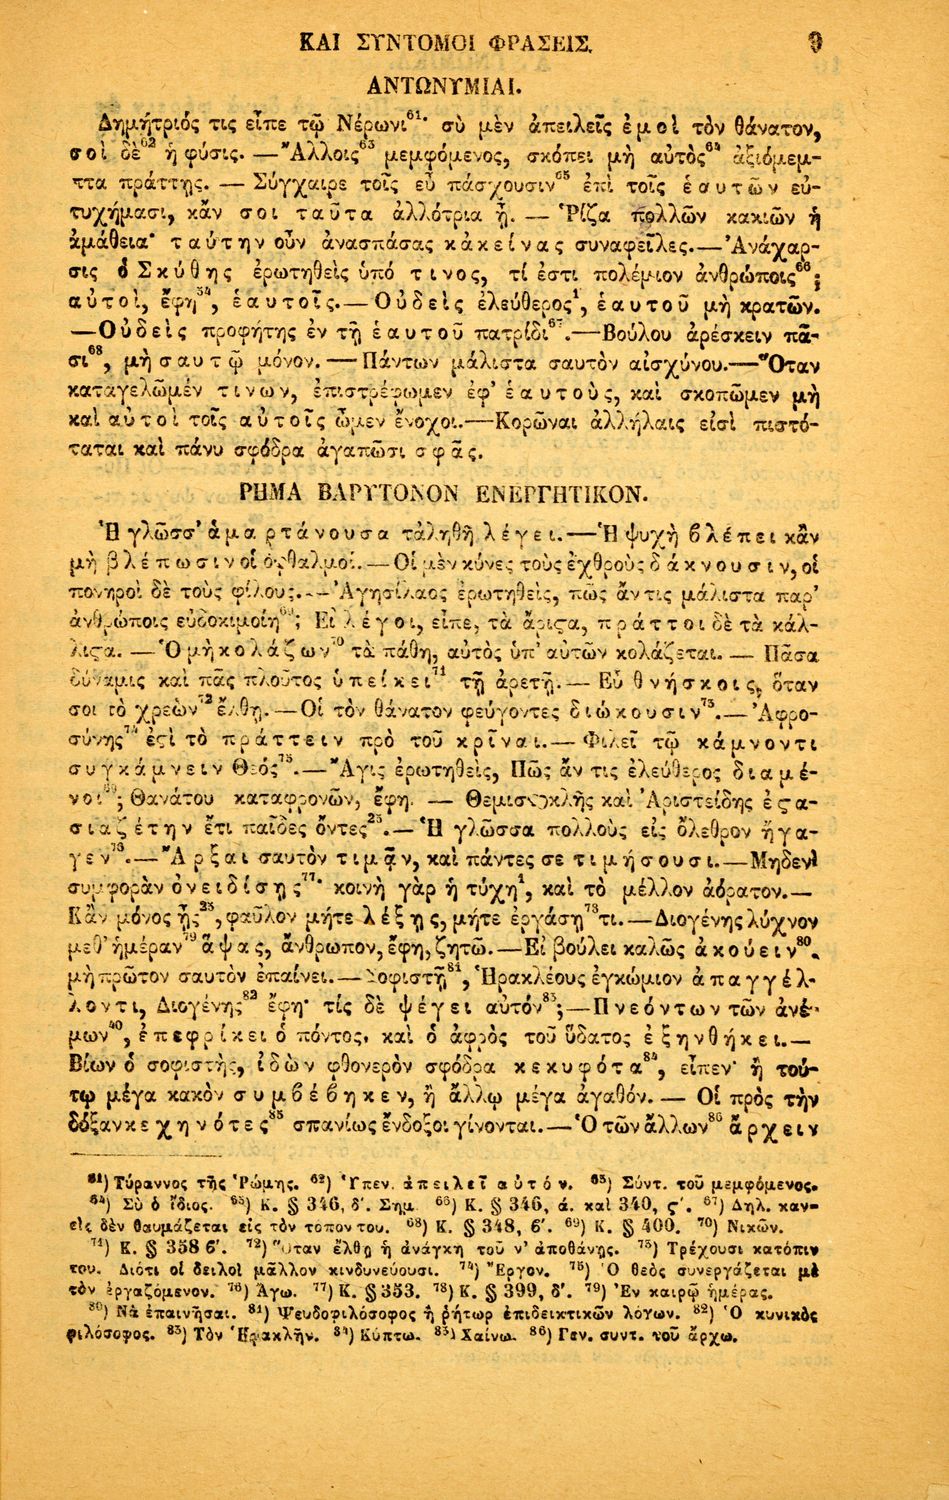 ΚΑΙ ΣΥΝΤΟΜΟΙ ΦΡΑΣΕΙΣ. 9
ΑΝΤΩΝΥΜΙΑΙ.
Δημήτριός τις εἶπε τῷ Νέρωνι⁶¹· σὺ μὲν ἀπειλεῖς ἐμοὶ τὸν θάνατον,
σοὶ δὲ⁶² ἡ φύσις. — Ἄλλοις⁶³ μεμφόμενος, σκόπει μὴ αὐτὸς⁶⁴ ἀξιόμεμ-
πτα πράττῃς. — Σύγχαιρε τοῖς εὖ πάσχουσιν⁶⁵ ἐπὶ τοῖς ἑαυτῶν εὐ-
τυχήμασι, κἄν σοι ταῦτα ἀλλότρια ᾖ. — Ῥίζα πολλῶν κακιῶν ἡ
ἀμάθεια· ταύτην οὖν ἀνασπάσας κἀκείνας συναφεῖλες. — Ἀνάχαρ-
σις ὁ Σκύθης ἐρωτηθεὶς ὑπό τινος, τί ἐστι πολέμιον ἀνθρώποις⁶⁶;
αὐτοὶ, ἔφη³⁴, ἑαυτοῖς. — Οὐδεὶς ἐλεύθερος¹, ἑαυτοῦ μὴ κρατῶν.
—Οὐδεὶς προφήτης ἐν τῇ ἑαυτοῦ πατρίδι⁶⁷. — Βούλου ἀρέσκειν πᾶ-
σι⁶⁸, μὴ σαυτῷ μόνον. — Πάντων μάλιστα σαυτὸν αἰσχύνου. — Ὅταν
καταγελῶμέν τινων, ἐπιστρέφωμεν ἐφ' ἑαυτοὺς, καὶ σκοπῶμεν μὴ
καὶ αὐτοὶ τοῖς αὐτοῖς ὦμεν ἔνοχοι. — Κορῶναι ἀλλήλαις εἰσὶ πιστό-
ταται καὶ πάνυ σφόδρα ἀγαπῶσι σφᾶς.
ΡΗΜΑ ΒΑΡΥΤΟΝΟΝ ΕΝΕΡΓΗΤΙΚΟΝ.
Ἡ γλῶσσ' ἁμαρτάνουσα τἀληθῆ λέγει. — Ἡ ψυχὴ βλέπει κἂν
μὴ βλέπωσιν οἱ ὀφθαλμοί. — Οἱ μὲν κύνες τοὺς ἐχθροὺς δάκνουσιν, οἱ
πονηροὶ δὲ τοὺς φίλους. — Ἀγησίλαος ἐρωτηθεὶς, πῶς ἄν τις μάλιστα παρ'
ἀνθρώποις εὐδοκιμοίη⁶⁹; Εἰ λέγοι, εἶπε, τὰ ἄριϛα, πράττοι δὲ τὰ κάλ-
λιϛα. — Ὁ μὴ κολάζων⁷⁰ τὰ πάθη, αὐτὸς ὑπ' αὐτῶν κολάζεται. — Πᾶσα
δύναμις καὶ πᾶς πλοῦτος ὑπείκει⁷¹ τῇ ἀρετῇ. — Εὖ θνήσκοις, ὅταν
σοι τὸ χρεὼν⁷² ἔλθῃ. — Οἱ τὸν θάνατον φεύγοντες διώκουσιν⁷³. — Ἀφρο-
σύνης⁷⁴ ἐϛὶ τὸ πράττειν πρὸ τοῦ κρῖναι. — Φιλεῖ τῷ κάμνοντι
συγκάμνειν Θεός⁷⁵. — Ἆγις ἐρωτηθεὶς, Πῶς ἄν τις ἐλεύθερος διαμέ-
νοι⁶⁹; Θανάτου καταφρονῶν, ἔφη. — Θεμιστοκλῆς καὶ Ἀριστείδης ἐϛα-
σιαζέτην ἔτι παῖδες ὄντες²³. — Ἡ γλῶσσα πολλοὺς εἰς ὄλεθρον ἤγα-
γεν⁷⁶. — Ἄρξαι σαυτὸν τιμᾷν, καὶ πάντες σε τιμήσουσι. — Μηδενὶ
συμφορὰν ὀνειδίσῃς⁷⁷· κοινὴ γὰρ ἡ τύχη¹, καὶ τὸ μέλλον ἀόρατον. —
Κἂν μόνος ᾖς²³, φαῦλον μήτε λέξῃς, μήτε ἐργάσῃ⁷⁸ τι. — Διογένης λύχνον
μεθ' ἡμέραν⁷⁹ ἅψας, ἄνθρωπον, ἔφη, ζητῶ. — Εἰ βούλει καλῶς ἀκούειν⁸⁰,
μὴ πρῶτον σαυτὸν ἐπαίνει. — Σοφιστῇ⁸¹, Ἡρακλέους ἐγκώμιον ἀπαγγέλ-
λοντι, Διογένης⁸² ἔφη· τίς δὲ ψέγει αὐτόν⁸³; — Πνεόντων τῶν ἀνέ-
μων⁴⁰, ἐπεφρίκει ὁ πόντος, καὶ ὁ ἀφρὸς τοῦ ὕδατος ἐξηνθήκει. —
Βίων ὁ σοφιστὴς, ἰδὼν φθονερὸν σφόδρα κεκυφότα⁸⁴, εἶπεν· ἢ τού-
τῳ μέγα κακὸν συμβέβηκεν, ἢ ἄλλῳ μέγα ἀγαθόν. — Οἱ πρὸς τὴν
δόξαν κεχηνότες⁸⁵ σπανίως ἔνδοξοι γίνονται. — Ὁ τῶν ἄλλων⁸⁶ ἄρχειν
⁶¹) Τύραννος τῆς Ῥώμης. ⁶²) Ὑπεν. ἀπειλεῖ αὐτόν. ⁶³) Σύντ. τοῦ μεμφόμενος.
⁶⁴) Σὺ ὁ ἴδιος. ⁶⁵) Κ. § 346, δ'. Σημ. ⁶⁶) Κ. § 346, ά. καὶ 340, ϛ'. ⁶⁷) Δηλ. καν-
εὶς δὲν θαυμάζεται εἰς τὸν τόπον του. ⁶⁸) Κ. § 348, β'. ⁶⁹) Κ. § 400. ⁷⁰) Νικῶν.
⁷¹) Κ. § 358 β'. ⁷²) Ὅταν ἔλθῃ ἡ ἀνάγκη τοῦ ν' ἀποθάνῃς. ⁷³) Τρέχουσι κατόπιν
του. Διότι οἱ δειλοὶ μᾶλλον κινδυνεύουσι. ⁷⁴) Ἔργον. ⁷⁵) Ὁ θεὸς συνεργάζεται μὲ
τὸν ἐργαζόμενον. ⁷⁶) Ἄγω. ⁷⁷) Κ. § 353. ⁷⁸) Κ. § 399, δ'. ⁷⁹) Ἐν καιρῷ ἡμέρας.
⁸⁰) Νὰ ἐπαινῆσαι. ⁸¹) Ψευδοφιλόσοφος ἢ ῥήτωρ ἐπιδεικτικῶν λόγων. ⁸²) Ὁ κυνικὸς
φιλόσοφος. ⁸³) Τὸν Ἡρακλῆν. ⁸⁴) Κύπτω. ⁸⁵) Χαίνω. ⁸⁶) Γεν. συντ. τοῦ ἄρχω.